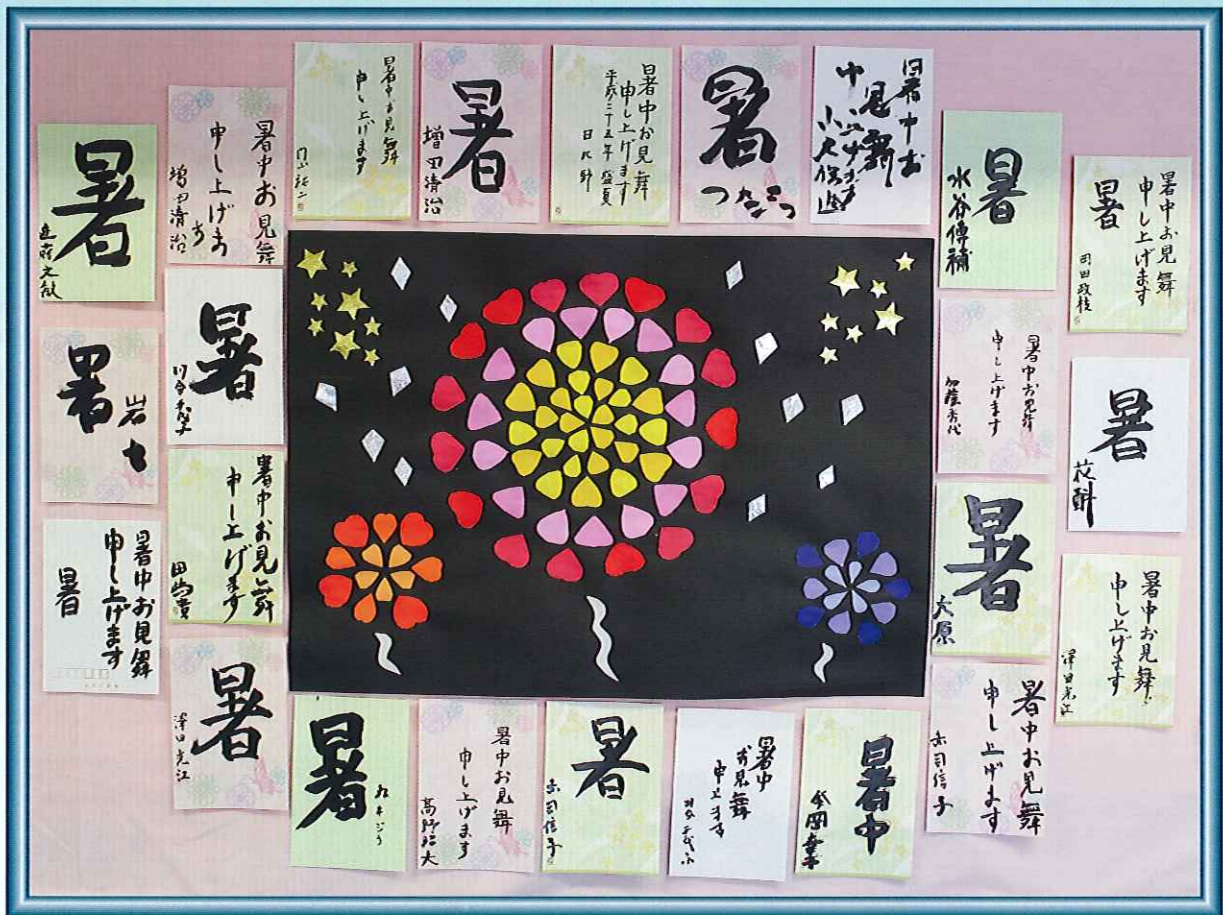 暑
暑中お見舞
申し上げます
増田清治
暑中お見舞
申し上げます
暑
増田清治
暑中お見舞
申し上げます
平成二十五年盛夏
日比野
暑
暑中お
暑
水谷傳補
暑中お見舞
申し上げます
暑
岡田政枝
暑
岩
暑
暑中お見舞
申し上げます
加藤秀代
暑
花酔
暑中お見舞
申し上げます
暑
暑中お見舞
申し上げます
田嶋貴
暑
大原
暑中お見舞
申し上げます
澤田光江
暑
澤田光江
暑
暑中お見舞
申し上げます
高野昭大
暑
赤司信子
暑中
お見舞
申上ます
暑中
暑中お見舞
申し上げます
赤司信子